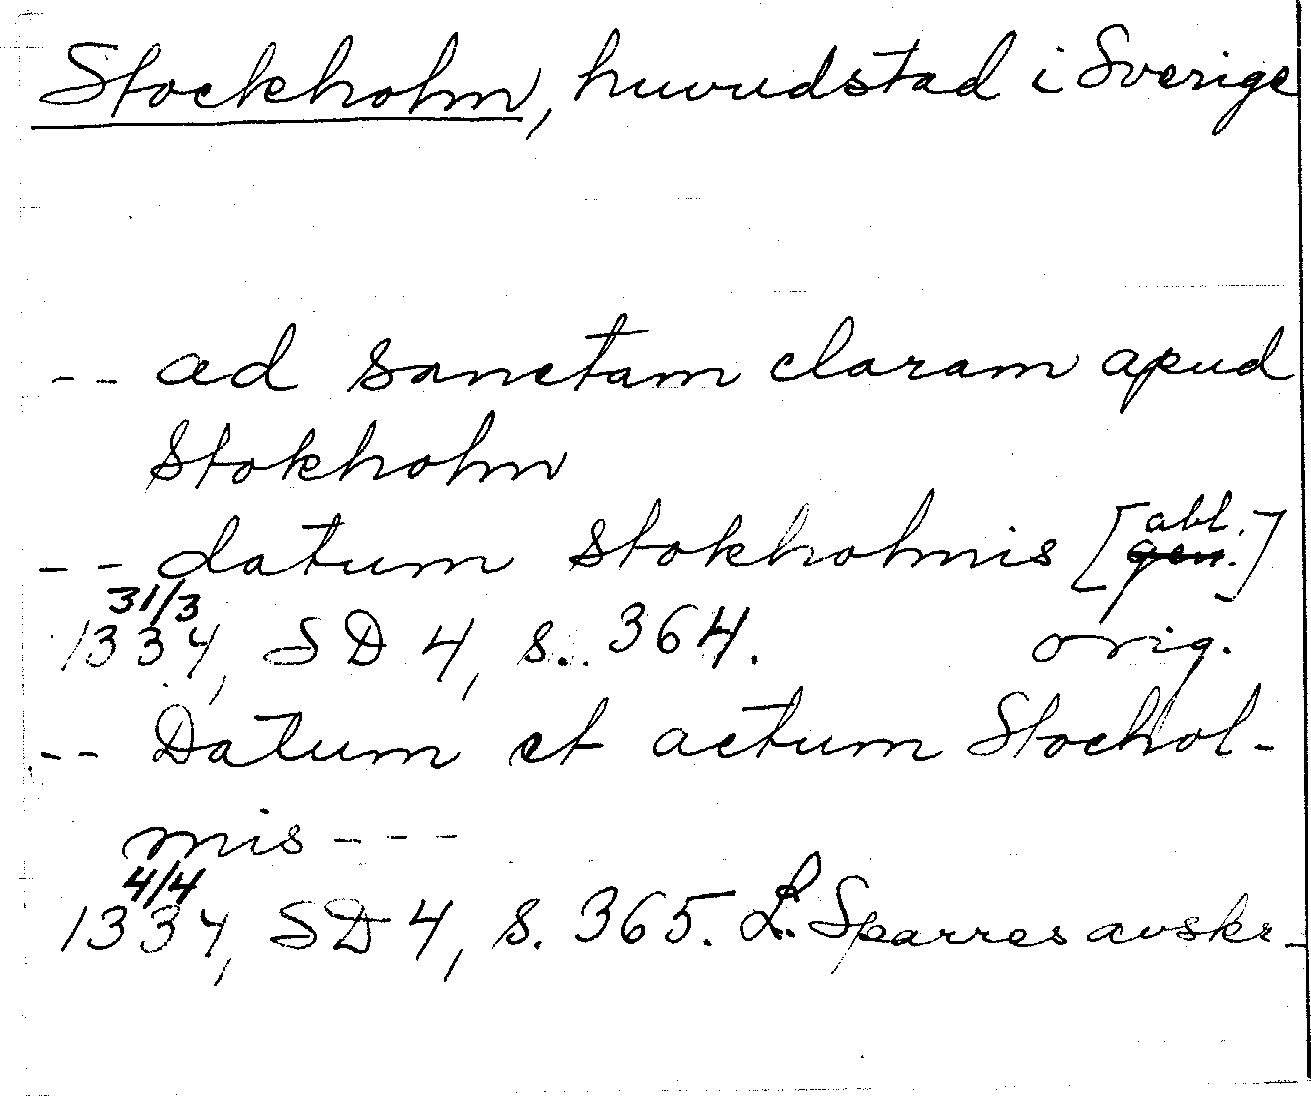 Stockholm, huvudstad i Sverige
-- ad Sanctam claram apud
Stokholm
-- datum Stokholmis [abl. gen.]
31/3
1334, SD 4, s. 364. orig.
-- Datum et actum Stochol-
mis ---
4/4
1334, SD 4, s. 365. L. Sparres avskr.